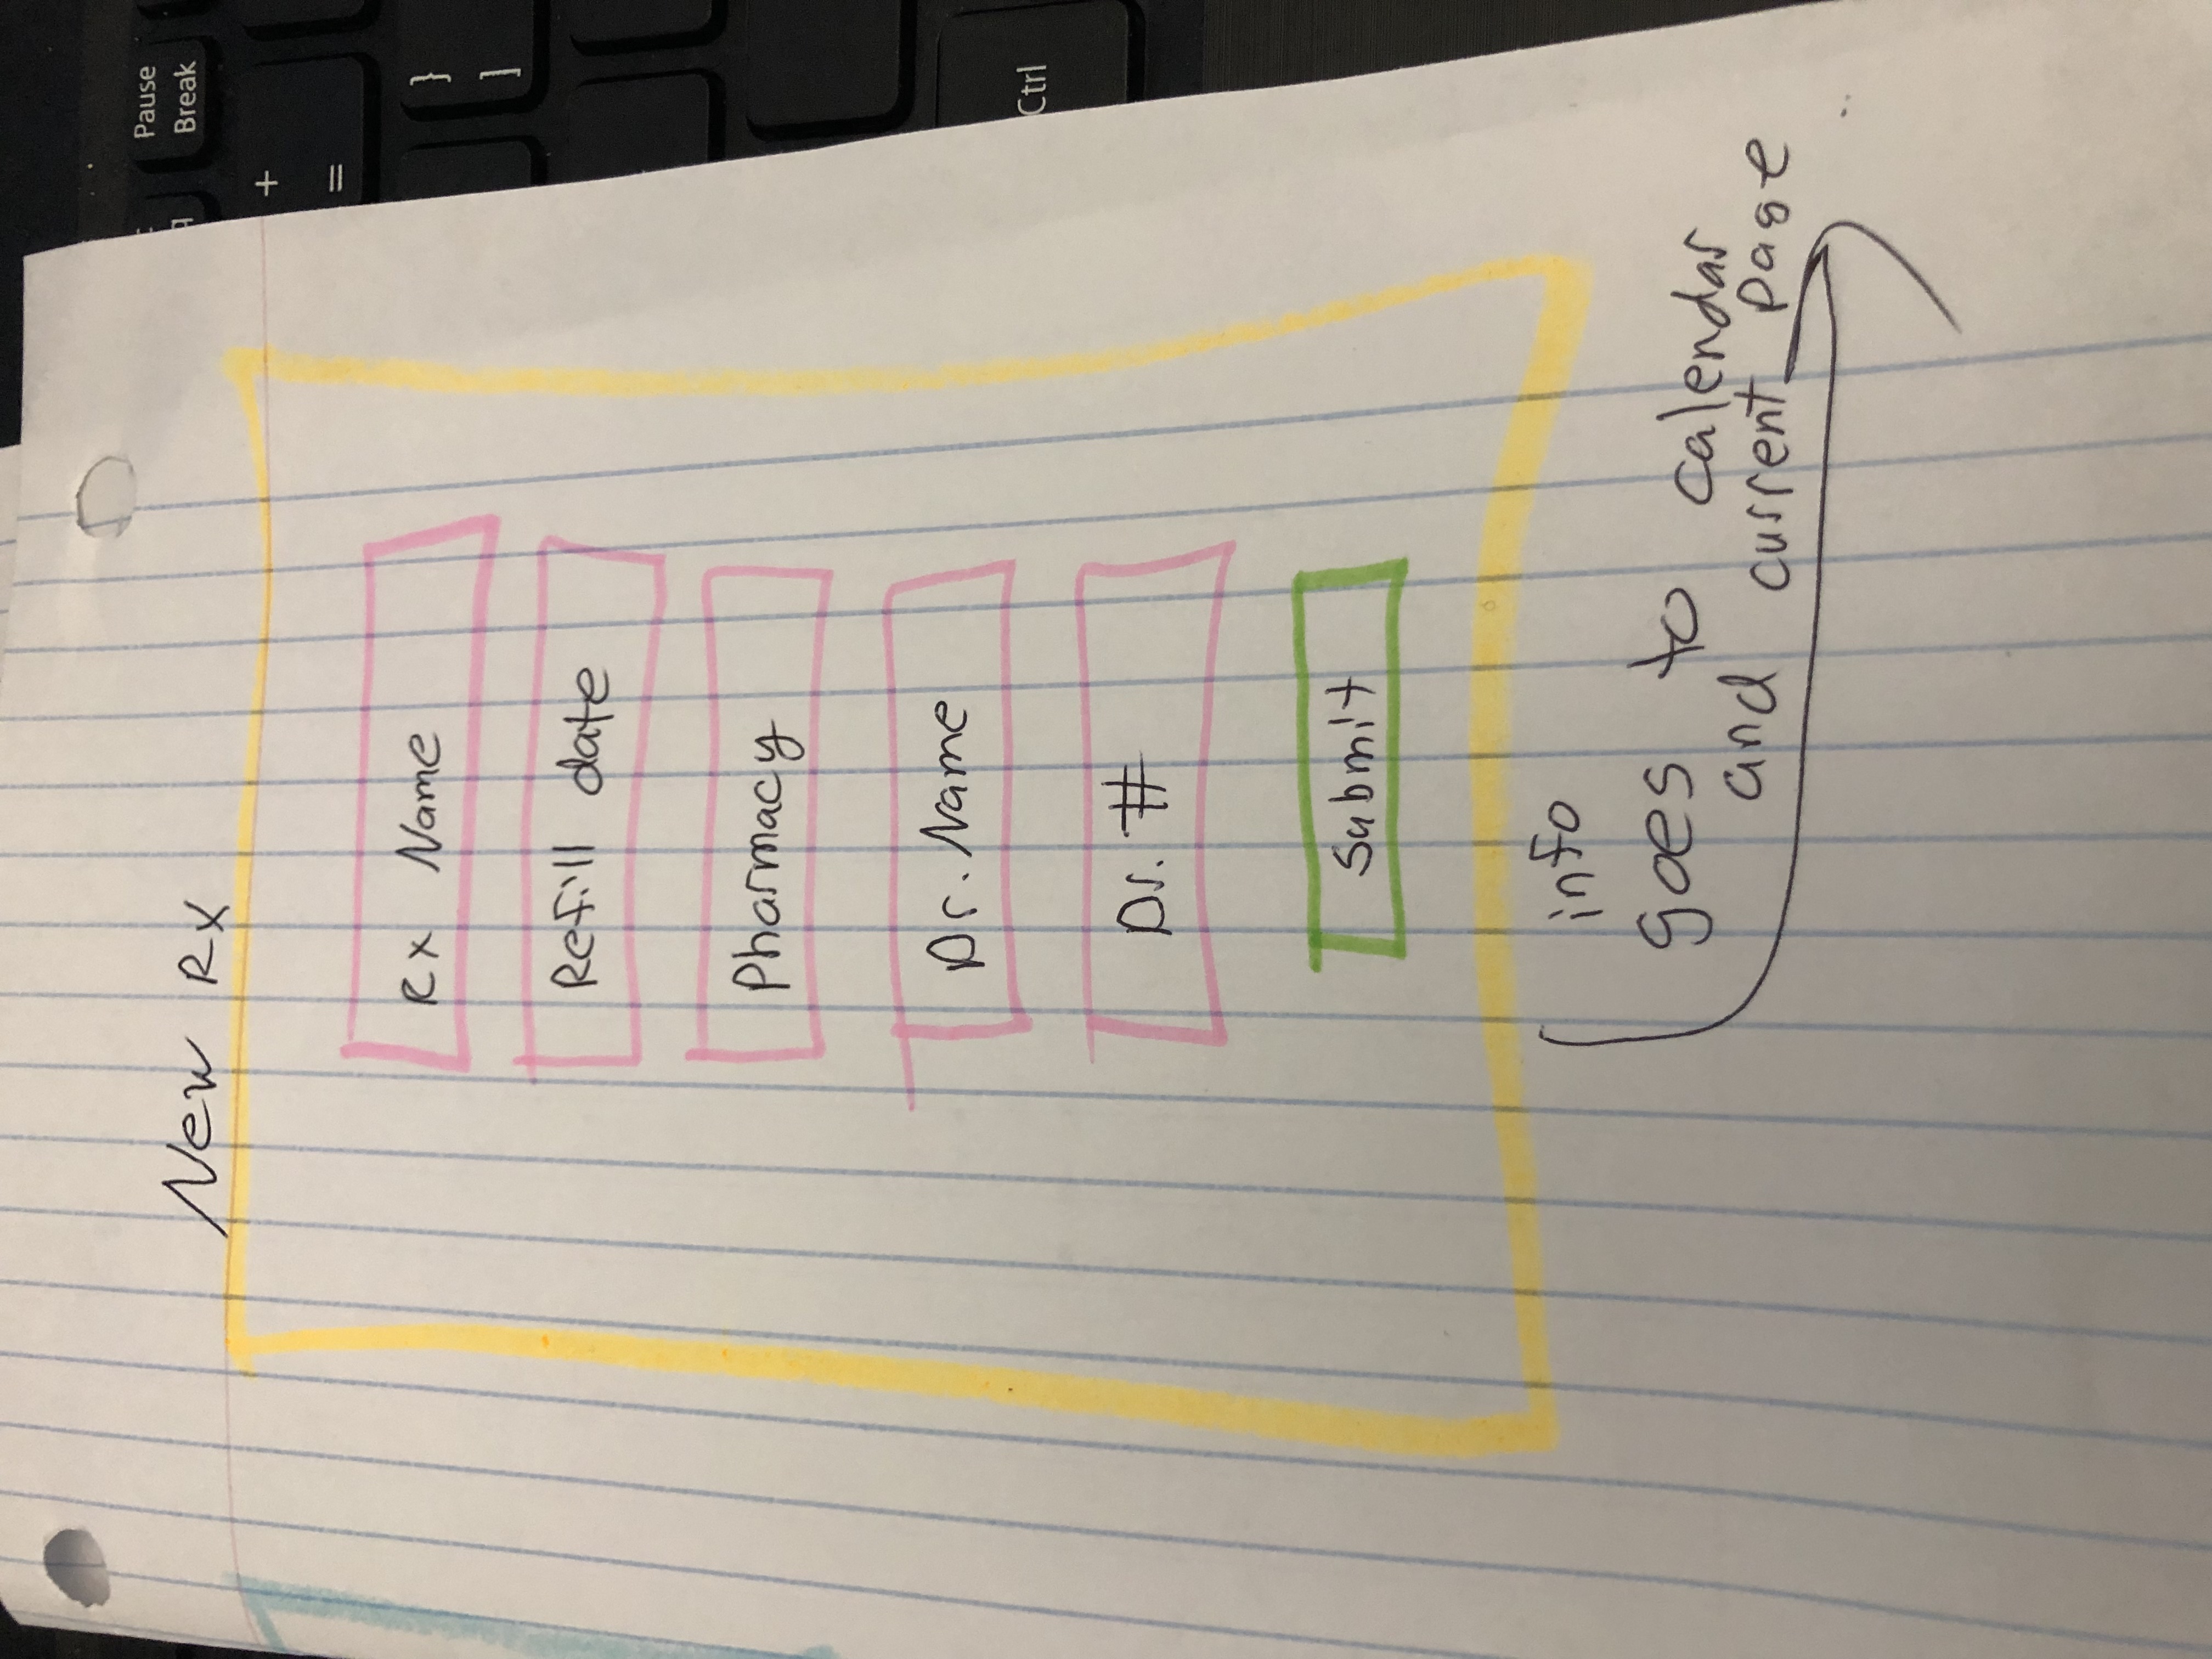 New Rx
Rx Name
Refill date
Pharmacy
Dr. Name
Dr. #
Submit
info
goes to calendar
and current page
Pause
Break
+
=
}
]
Ctrl